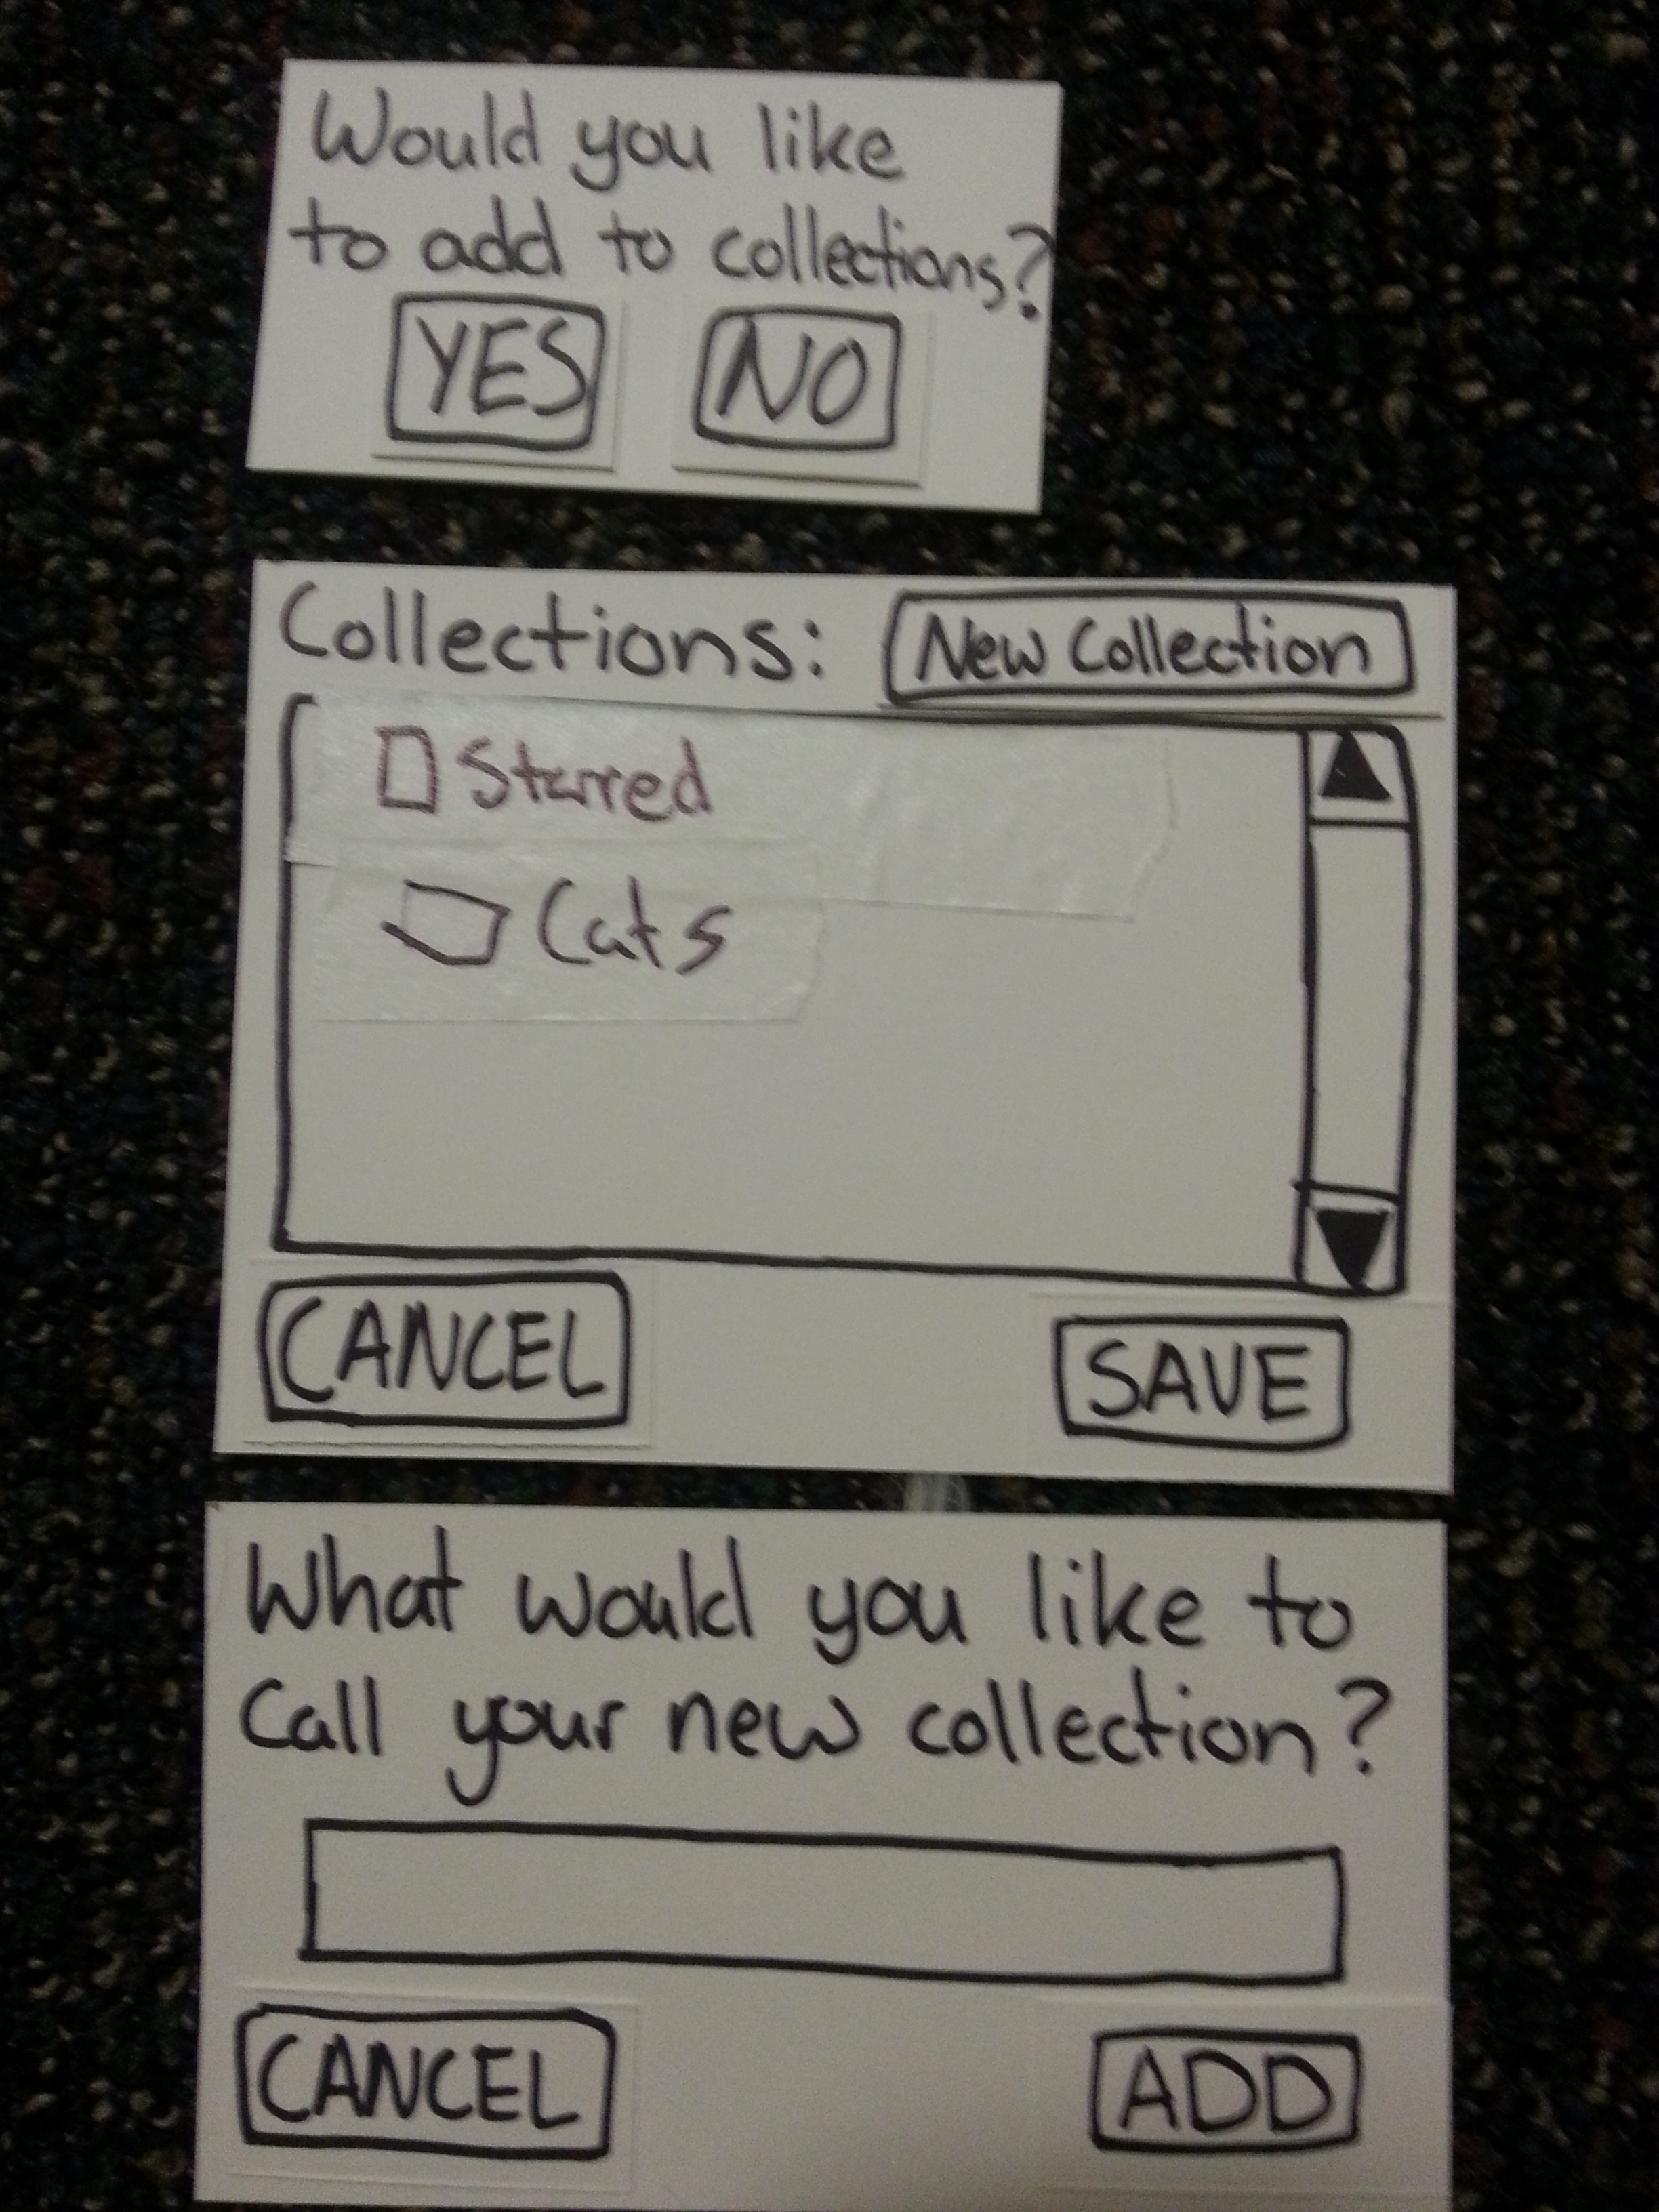 Would you like
to add to collections?
YES NO
Collections: New Collection
Starred
Cats
CANCEL SAVE
What would you like to
Call your new collection?
CANCEL ADD